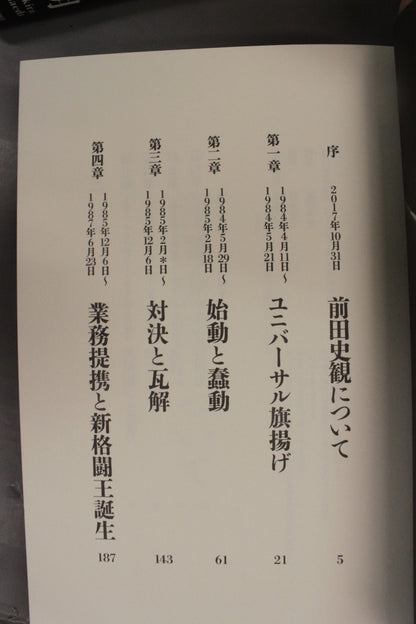 序
2017年10月31日
前田史観について
5
第一章
1984年4月11日～
1984年5月21日
ユニバーサル旗揚げ
21
第二章
1984年5月29日～
1985年2月18日
始動と蠢動
61
第三章
1985年2月＊日～
1985年12月6日
対決と瓦解
143
第四章
1985年12月6日～
1987年6月23日
業務提携と新格闘王誕生
187